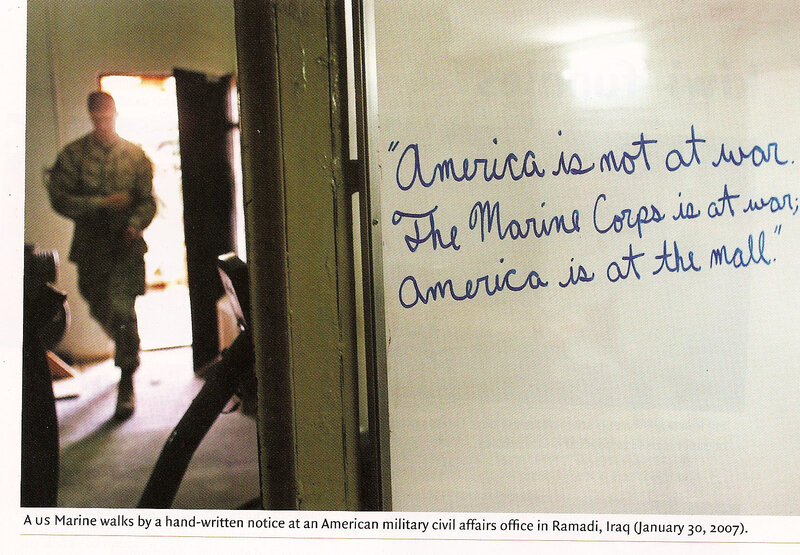 "America is not at war.
The Marine Corps is at war;
America is at the mall."
A US Marine walks by a hand-written notice at an American military civil affairs office in Ramadi, Iraq (January 30, 2007).